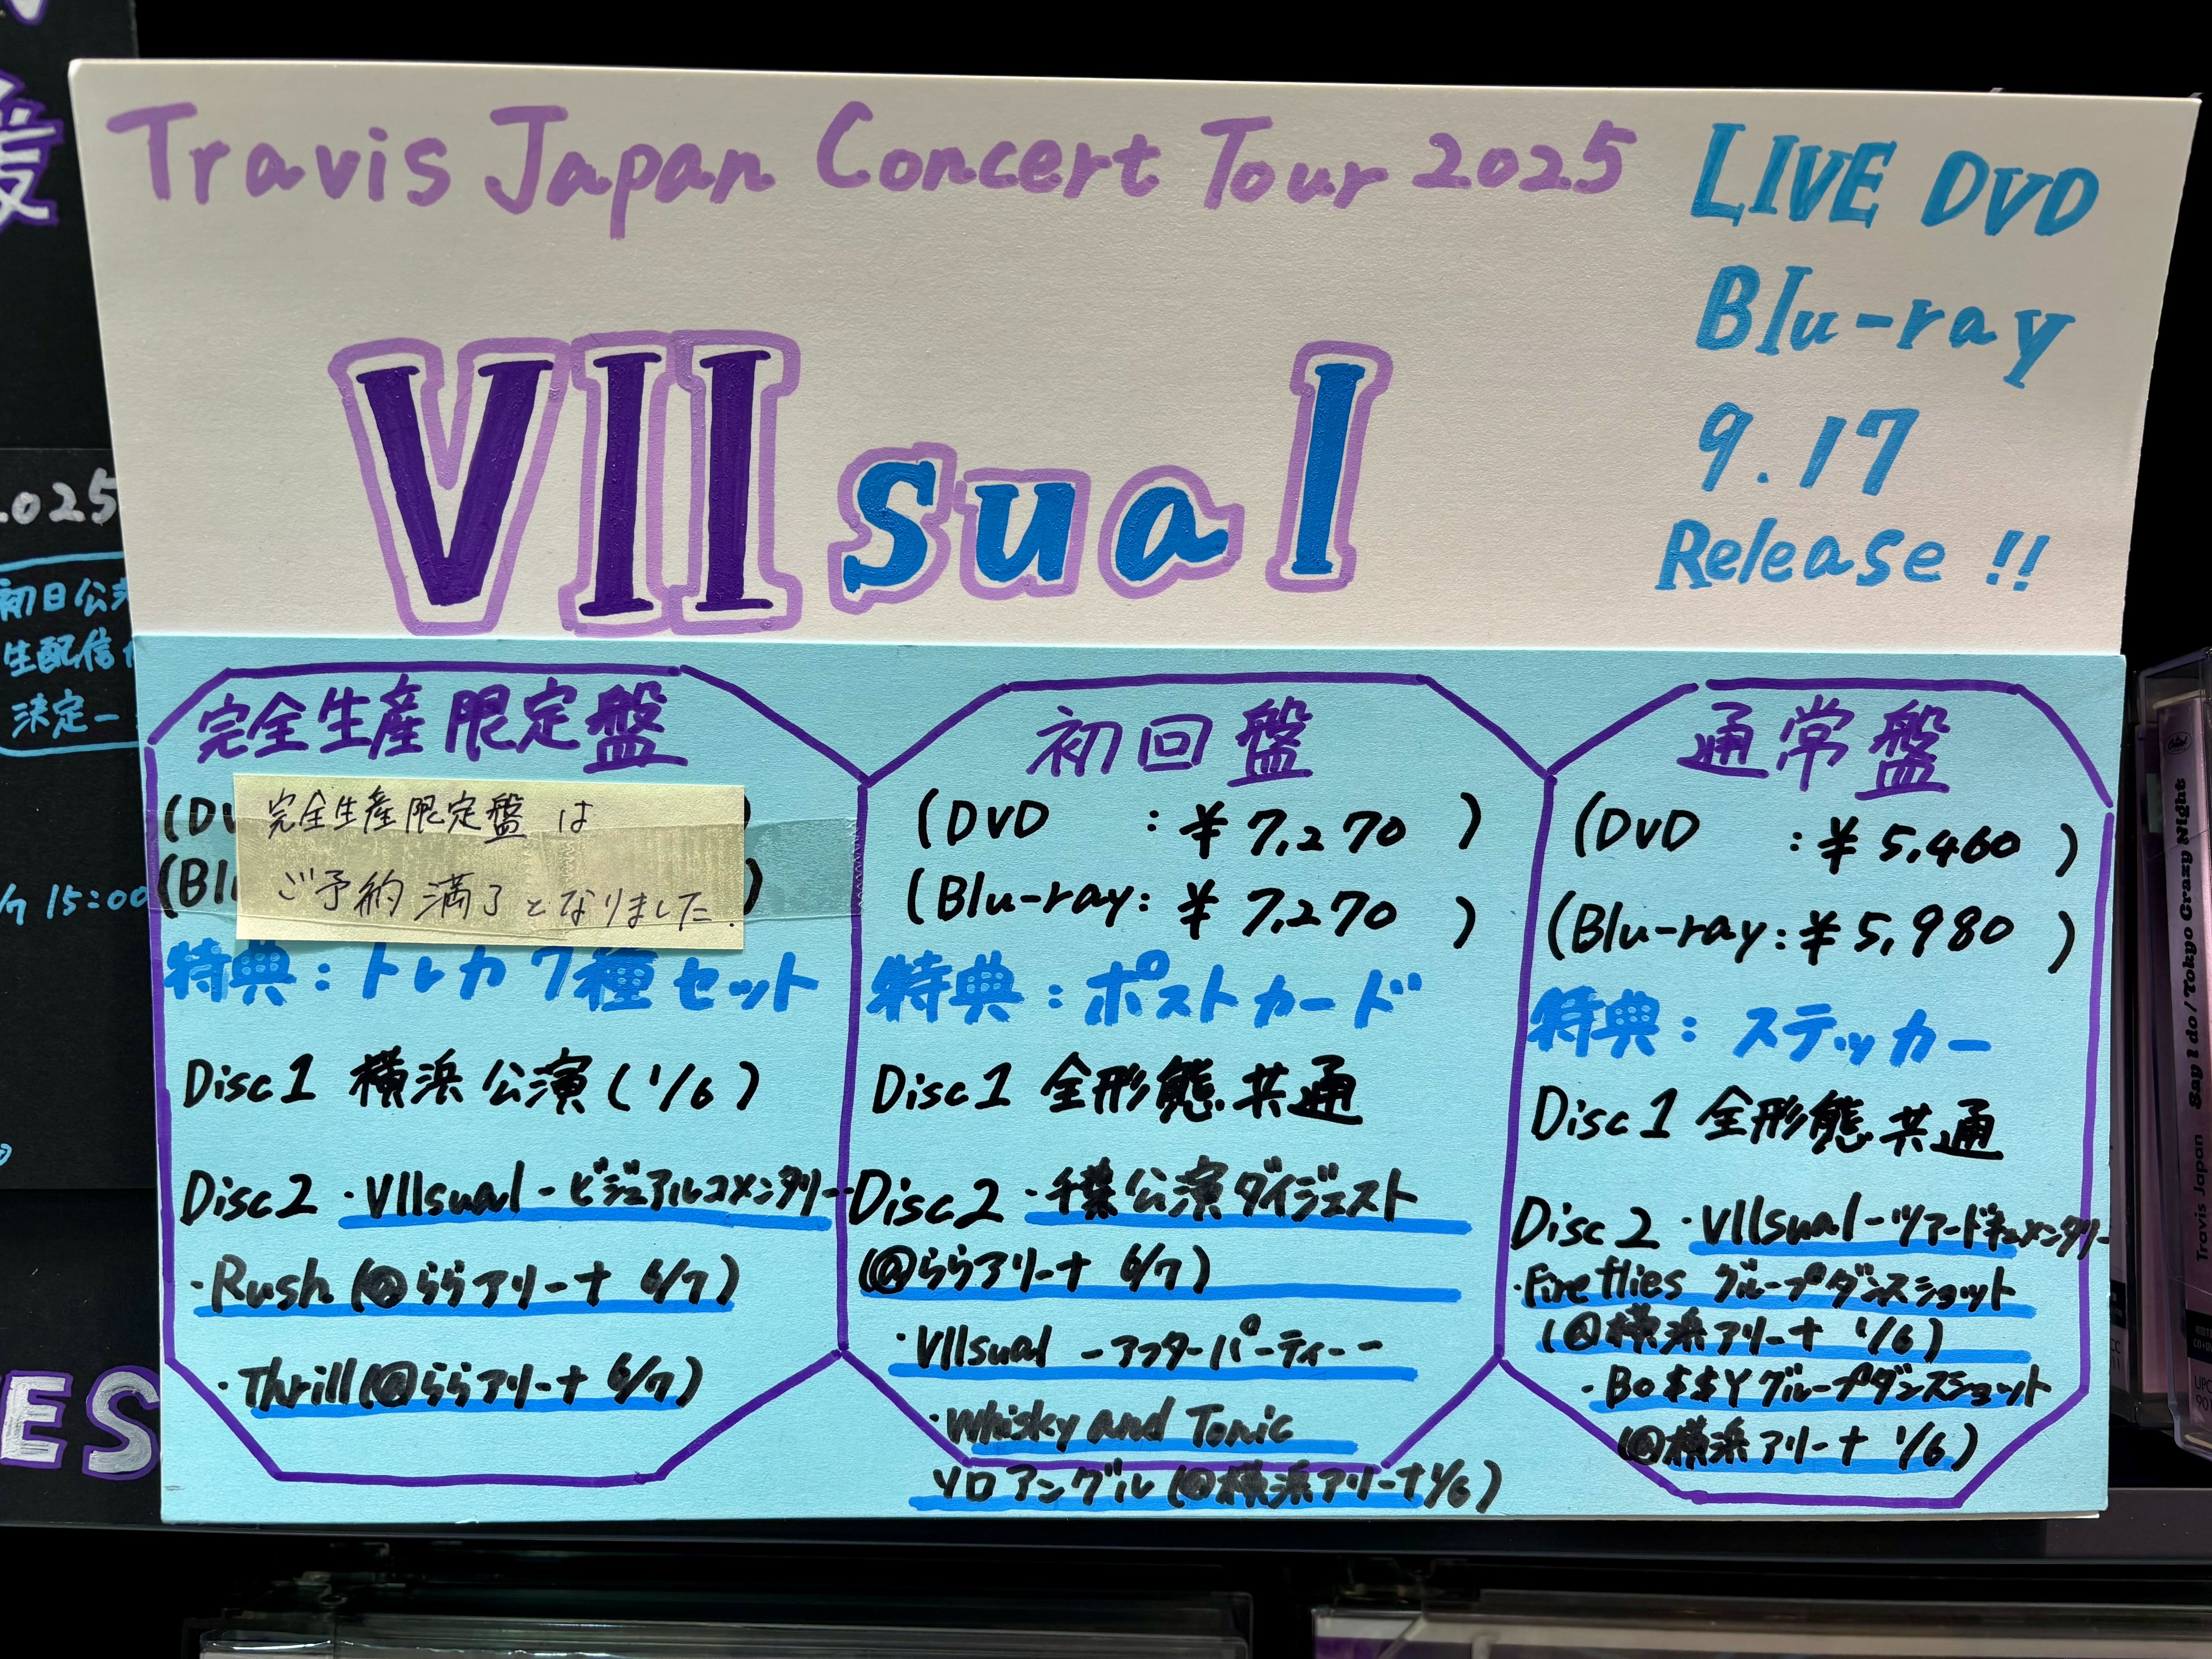 Travis Japan Concert Tour 2025
VIIsual
LIVE DVD
Blu-ray
9.17
Release !!
完全生産限定盤
完全生産限定盤 は
ご予約満了となりました.
特典:トレカ7種セット
Disc1 横浜公演(1/6)
Disc2 ・VIIsual-ビジュアルコメンタリー-
・Rush(@ららアリーナ 6/7)
・Thrill(@ららアリーナ 6/7)
初回盤
(DVD :¥7,270 )
(Blu-ray:¥7,270 )
特典:ポストカード
Disc1 全形態共通
Disc2 ・千葉公演ダイジェスト
(@ららアリーナ 6/7)
・VIIsual -アフターパーティー-
・Whisky and Tonic
ソロアングル(@横浜アリーナ1/6)
通常盤
(DVD :¥5,460 )
(Blu-ray:¥5,980 )
特典:ステッカー
Disc1 全形態共通
Disc2 ・VIIsual-ツアードキュメンタリー
・Fireflies グループダンスショット
(@横浜アリーナ 1/6)
・Bo$$Yグループダンスショット
(@横浜アリーナ 1/6)
2025
初日公
生配信
決定-
15:00
ES
Travis Japan Say I do / Tokyo Crazy Night